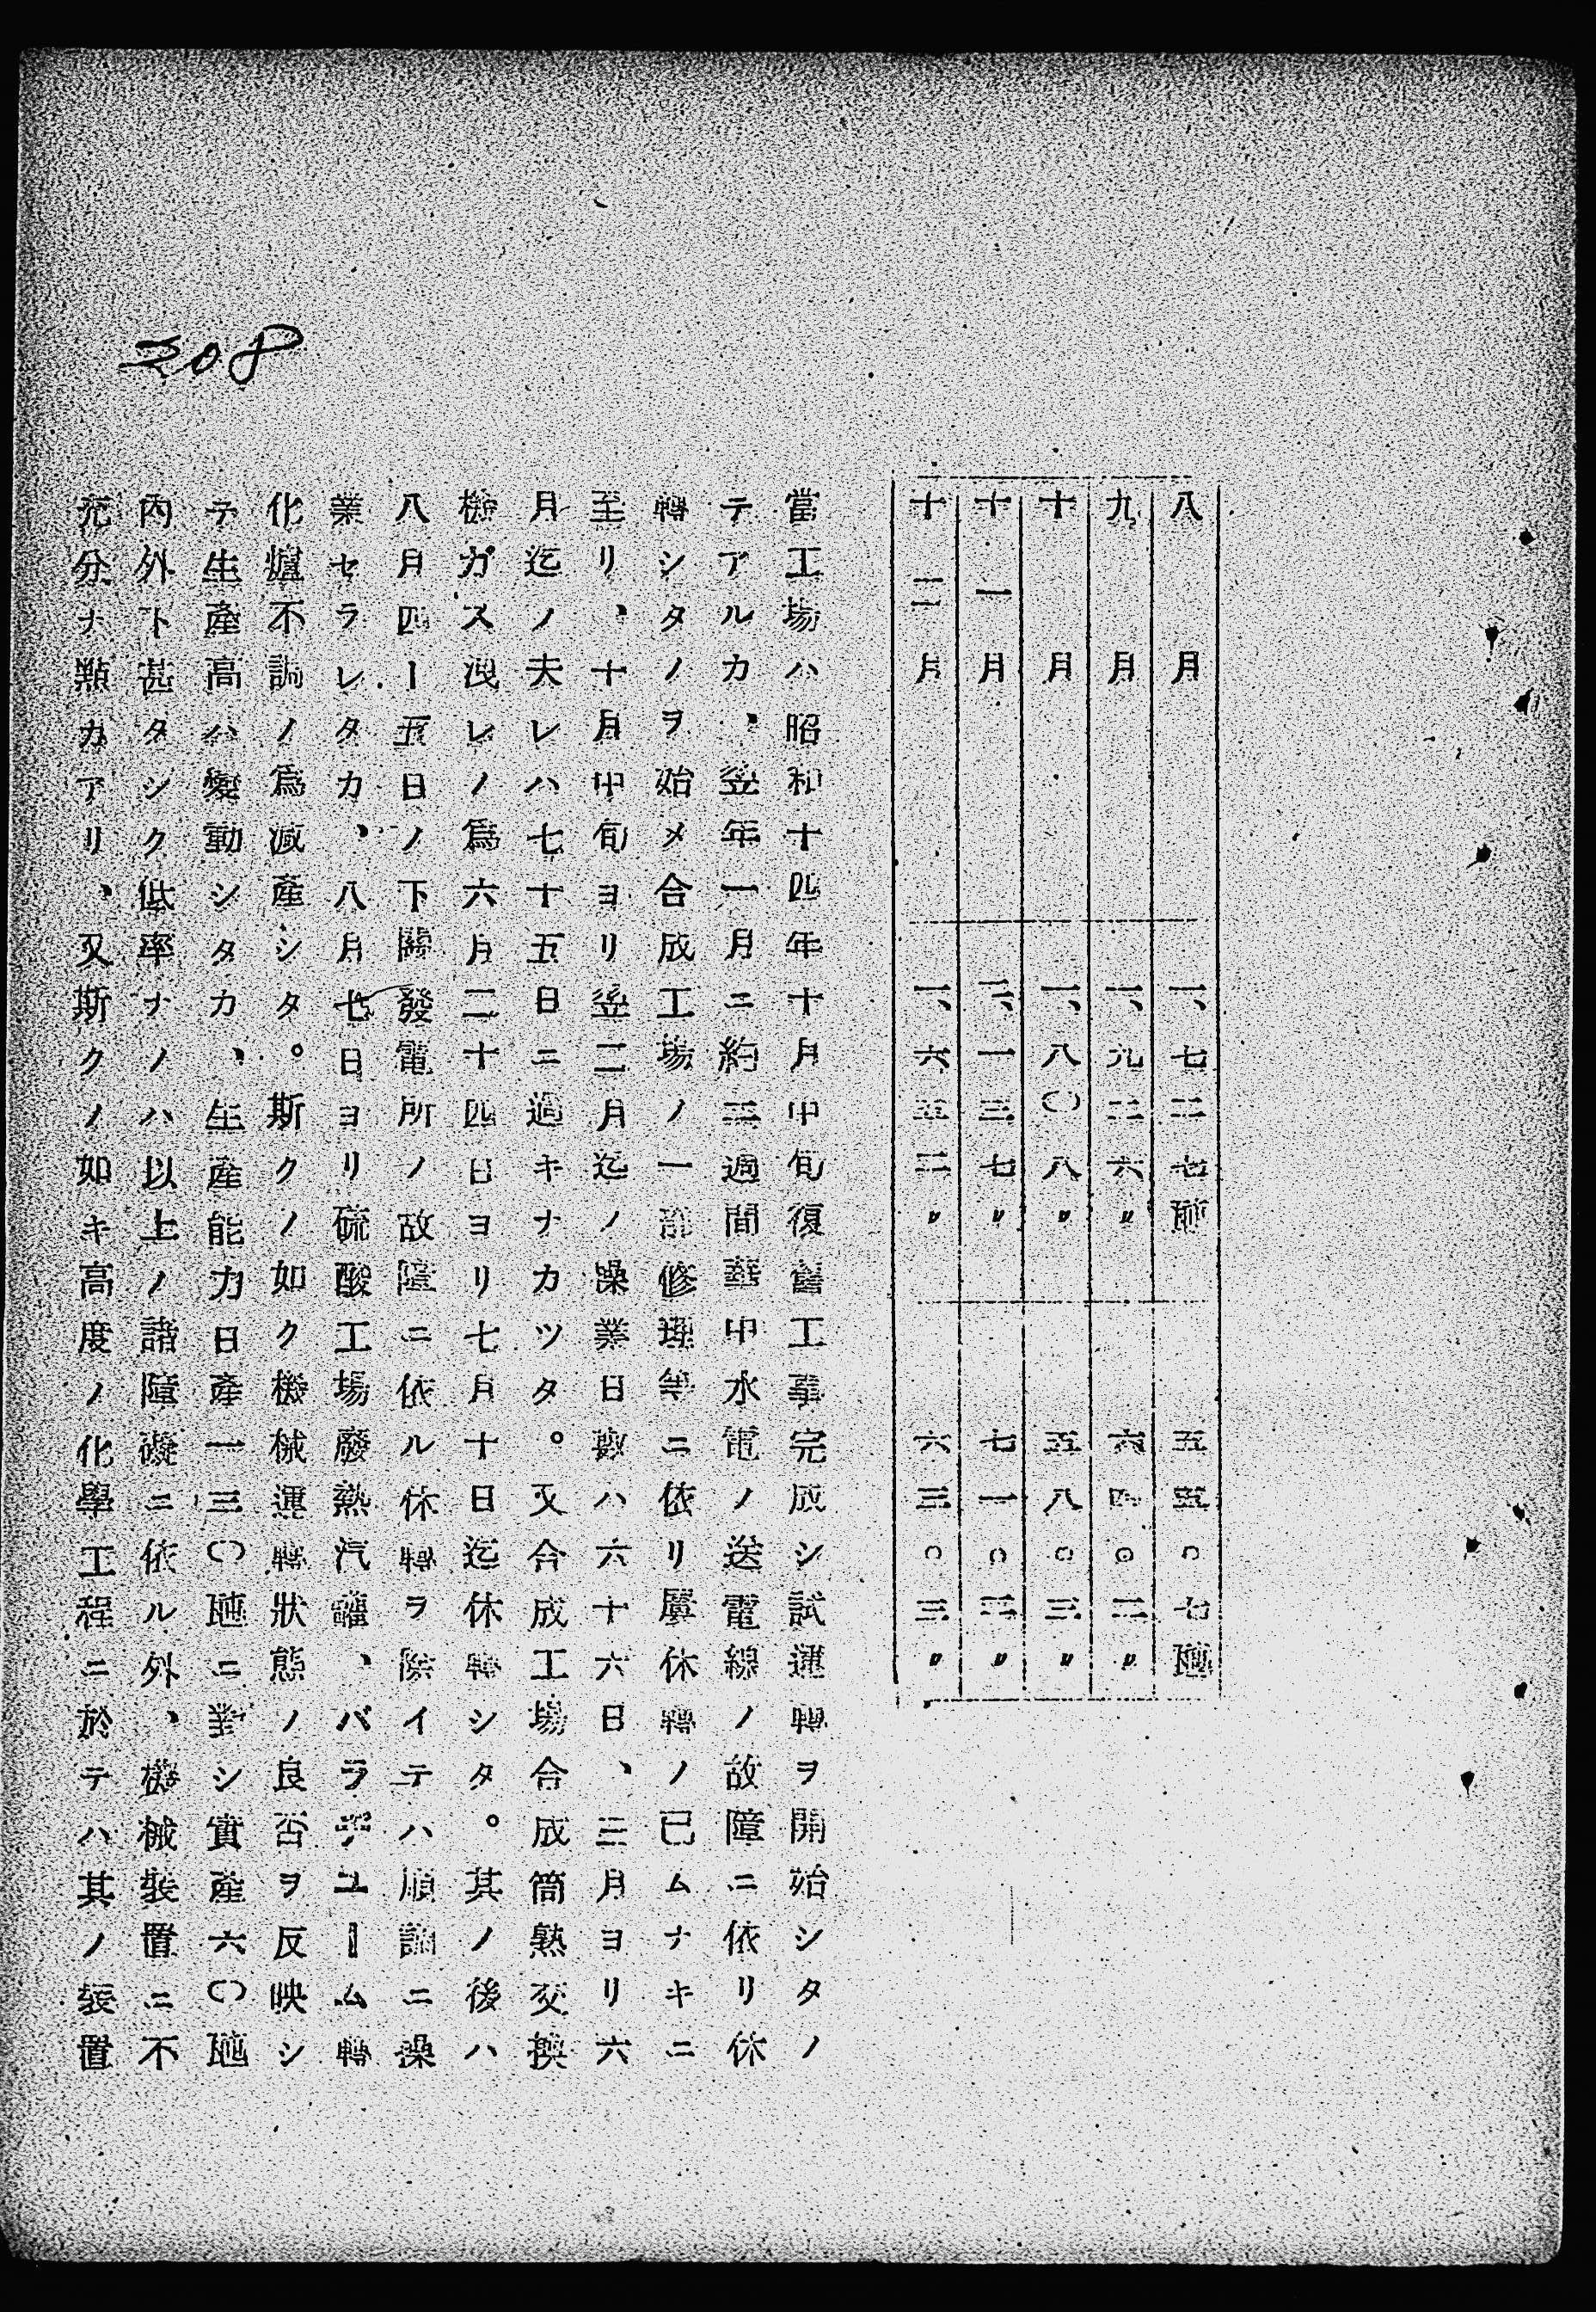 208
八月 一、七二七瓲 五五〇七瓲
九月 一、九二六〃 六四〇二〃
十月 一、八〇八〃 五八〇三〃
十一月 二、一三七〃 七一〇三〃
十二月 一、六五二〃 六三〇三〃
當工場ハ昭和十四年十月中旬復舊工事完成シ試運轉ヲ開始シタノ
テアルカ、翌年一月ニ約三週間華中水電ノ送電線ノ故障ニ依リ休
轉シタノヲ始メ合成工場ノ一部修理等ニ依リ屢休轉ノ已ムナキニ
至リ、十月中旬ヨリ翌二月迄ノ操業日數ハ六十六日、三月ヨリ六
月迄ノ夫レハ七十五日ニ過キナカツタ。又合成工場合成筒熱交換
機ガス洩レノ爲六月二十四日ヨリ七月十日迄休轉シタ。其ノ後ハ
八月四ー五日ノ下關發電所ノ故障ニ依ル休轉ヲ除イテハ順調ニ操
業セラレタカ、八月七日ヨリ硫酸工場廢熱汽罐、バラヂユーム轉
化爐不調ノ爲減產シタ。斯クノ如ク機械運轉狀態ノ良否ヲ反映シ
テ生產高ハ變動シタカ、生産能力日產一三〇瓲ニ對シ實產六〇瓲
內外ト甚タシク低率ナノハ以上ノ諸障礙ニ依ル外、機械裝置ニ不
充分ナ點カアリ、又斯クノ如キ高度ノ化學工程ニ於テハ其ノ裝置